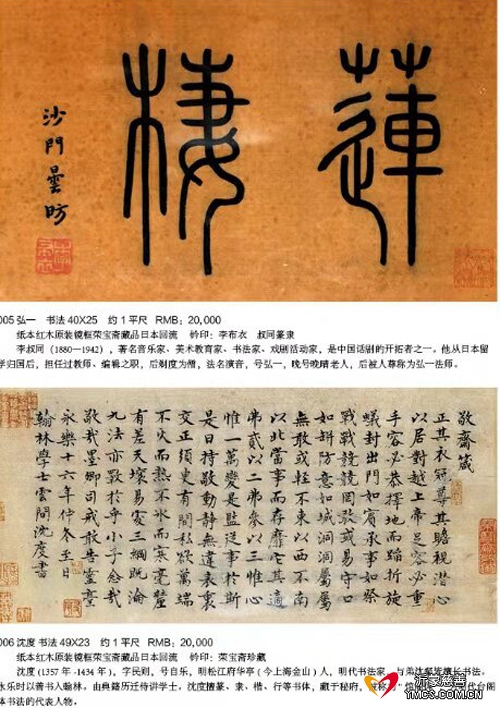 蓮棲
沙門曇昉
005弘一 书法 40X25 约1平尺 RMB：20,000
纸本红木原装镜框荣宝斋藏品日本回流 钤印：李布衣 叔同篆隶
李叔同（1880—1942），著名音乐家、美术教育家、书法家、戏剧活动家，是中国话剧的开拓者之一。他从日本留
学归国后，担任过教师、编辑之职，后剃度为僧，法名演音，号弘一，晚号晚晴老人，后被人尊称为弘一法师。
敬齋箴
正其衣冠尊其瞻視潛心
以居對越上帝足容必重
手容必恭擇地而蹈折旋
蟻封出門如賓承事如祭
戰戰兢兢罔敢或易守口
如缾防意如城洞洞屬屬
無敢或輕不東以西不南
以北當事而存靡它其適
弗貳以二弗參以三惟心
惟一萬變是監從事於斯
是曰持敬動靜無違表裏
交正須臾有間私欲萬端
不火而熱不冰而寒毫釐
有差天壤易處三綱既淪
九法亦斁於乎小子念哉
敬哉墨卿司戒敢告靈臺
永樂十六年仲冬至日
翰林學士雲間沈度書
006沈度 书法 49X23 约1平尺 RMB：20,000
纸本红木原装镜框荣宝斋藏品日本回流 钤印：荣宝斋珍藏
沈度（1357年-1434年），字民则，号自乐，明松江府华亭（今上海金山）人，明代书法家，与弟沈粲皆擅长书法。
永乐时以善书入翰林，由典籍历迁侍讲学士，沈度擅篆、隶、楷、行等书体，藏于秘府，被称
体书法的代表人物。
WWW.SXCSW.ORG.CN